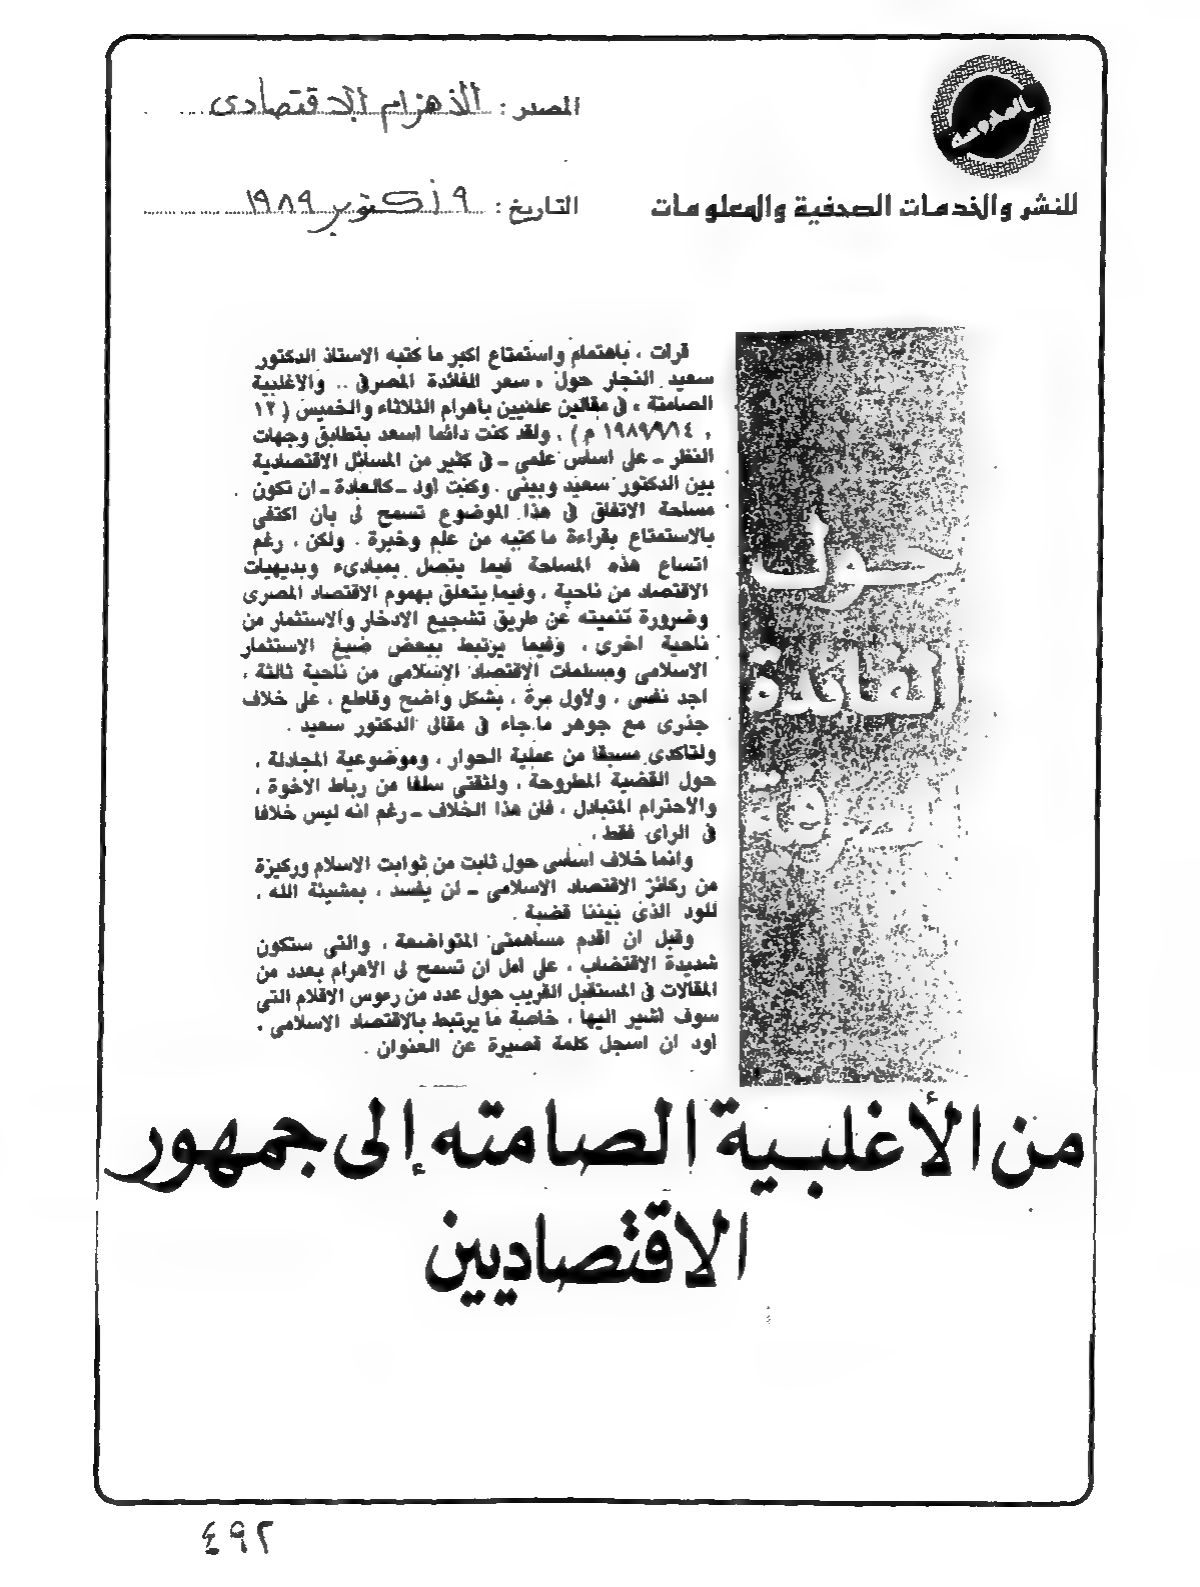 المصدر : الأهرام الاقتصادى
التاريخ : ٩ أكتوبر ١٩٨٩
للنشر والخدمات الصحفية والمعلومات
قرأت ، باهتمام واستمتاع اكبر ما كتبه الاستاذ الدكتور
سعيد النجار حول « سعر الفائدة المصرفى .. والأغلبية
الصامتة » فى مقالين علميين بأهرام الثلاثاء والخميس ( ١٢
، ١٩٨٩/٩/١٤ م ) . ولقد كنت دائما اسعد بتطابق وجهات
النظر ـ على اساس علمى ـ فى كثير من المسائل الاقتصادية
بين الدكتور سعيد وبينى . وكنت اود ـ كالعادة ـ ان تكون
مساحة الاتفاق فى هذا الموضوع تسمح لى بأن اكتفى
بالاستمتاع بقراءة ما كتبه من علم وخبرة . ولكن ، رغم
اتساع هذه المساحة فيما يتصل بمبادىء وبديهيات
الاقتصاد من ناحية ، وفيما يتعلق بهموم الاقتصاد المصرى
وضرورة تنميته عن طريق تشجيع الادخار والاستثمار من
ناحية اخرى ، وفيما يرتبط ببعض صيغ الاستثمار
الاسلامى ومسلمات الاقتصاد الإسلامى من ناحية ثالثة ،
اجد نفسى ، ولأول مرة ، بشكل واضح وقاطع ، على خلاف
جذرى مع جوهر ما جاء فى مقالى الدكتور سعيد .
ولتاكدى مسبقا من عملية الحوار ، وموضوعية المجادلة ،
حول القضية المطروحة ، ولثقتى سلفا من رباط الاخوة ،
والاحترام المتبادل ، فان هذا الخلاف ـ رغم انه ليس خلافا
فى الراى فقط ،
وانما خلاف اساسى حول ثابت من ثوابت الاسلام وركيزة
من ركائز الاقتصاد الإسلامى ـ لن يفسد ، بمشيئة الله ،
للود الذى بيننا قضية .
وقبل ان اقدم مساهمتى المتواضعة ، والتى ستكون
شديدة الاقتضاب ، على امل ان تسمح لى الأهرام بعدد من
المقالات فى المستقبل القريب حول عدد من رءوس الاقلام التى
سوف اشير اليها ، خاصة ما يرتبط بالاقتصاد الاسلامى ،
اود ان اسجل كلمة قصيرة عن العنوان .
حول
الفائدة
من الأغلبية الصامته إلى جمهور
الاقتصاديين
٤٩٢